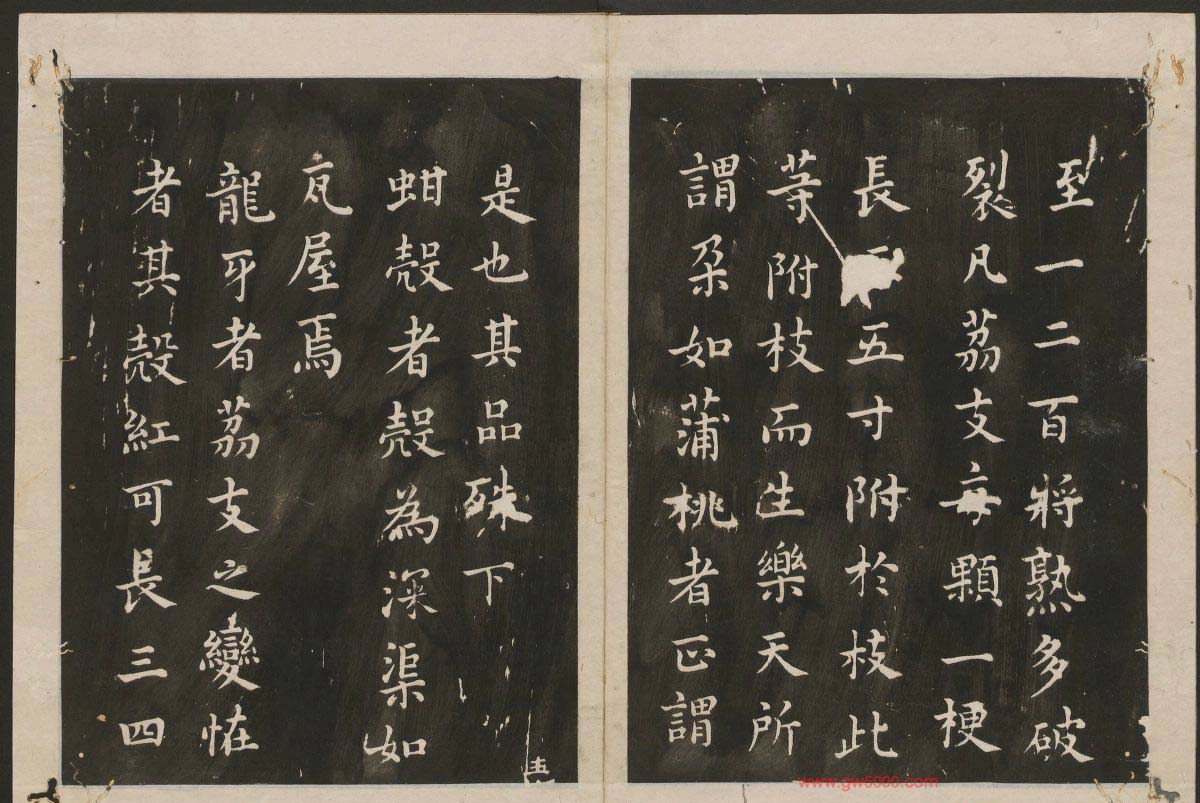 至一二百將熟多破
裂凡荔支每顆一梗
長三五寸附於枝此
等附枝而生樂天所
謂朶如蒲桃者正謂
是也其品殊下
蚶殼者殼為深渠如
瓦屋焉
龍牙者荔支之變怪
者其殼紅可長三四
www.gw5000.com